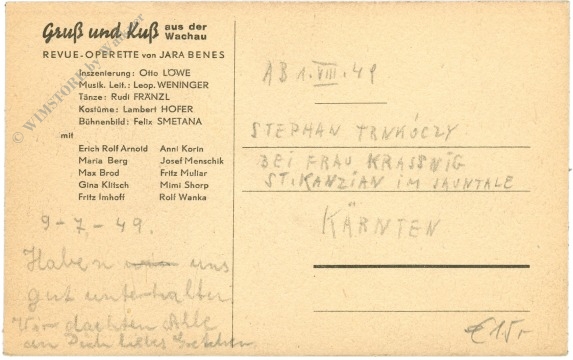 Gruß und Kuß aus der Wachau
REVUE-OPERETTE von JARA BENES
Inszenierung: Otto LÖWE
Musik. Leit.: Leop. WENINGER
Tänze: Rudi FRÄNZL
Kostüme: Lambert HOFER
Bühnenbild: Felix SMETANA
mit
Erich Rolf Arnold Anni Korin
Maria Berg Josef Menschik
Max Brod Fritz Muliar
Gina Klitsch Mimi Shorp
Fritz Imhoff Rolf Wanka
9-7.-49.
Haben uns
gut unterhalten
Wir dachten Alle
an Dich liebes Gretchen.
AB 1.VIII.49
STEPHAN TRNKÓCZY
BEI FRAU KRASSNIG
ST. KANZIAN IM JAUNTALE
KÄRNTEN
€ 15,-
© WIMSTORE by Wimmer